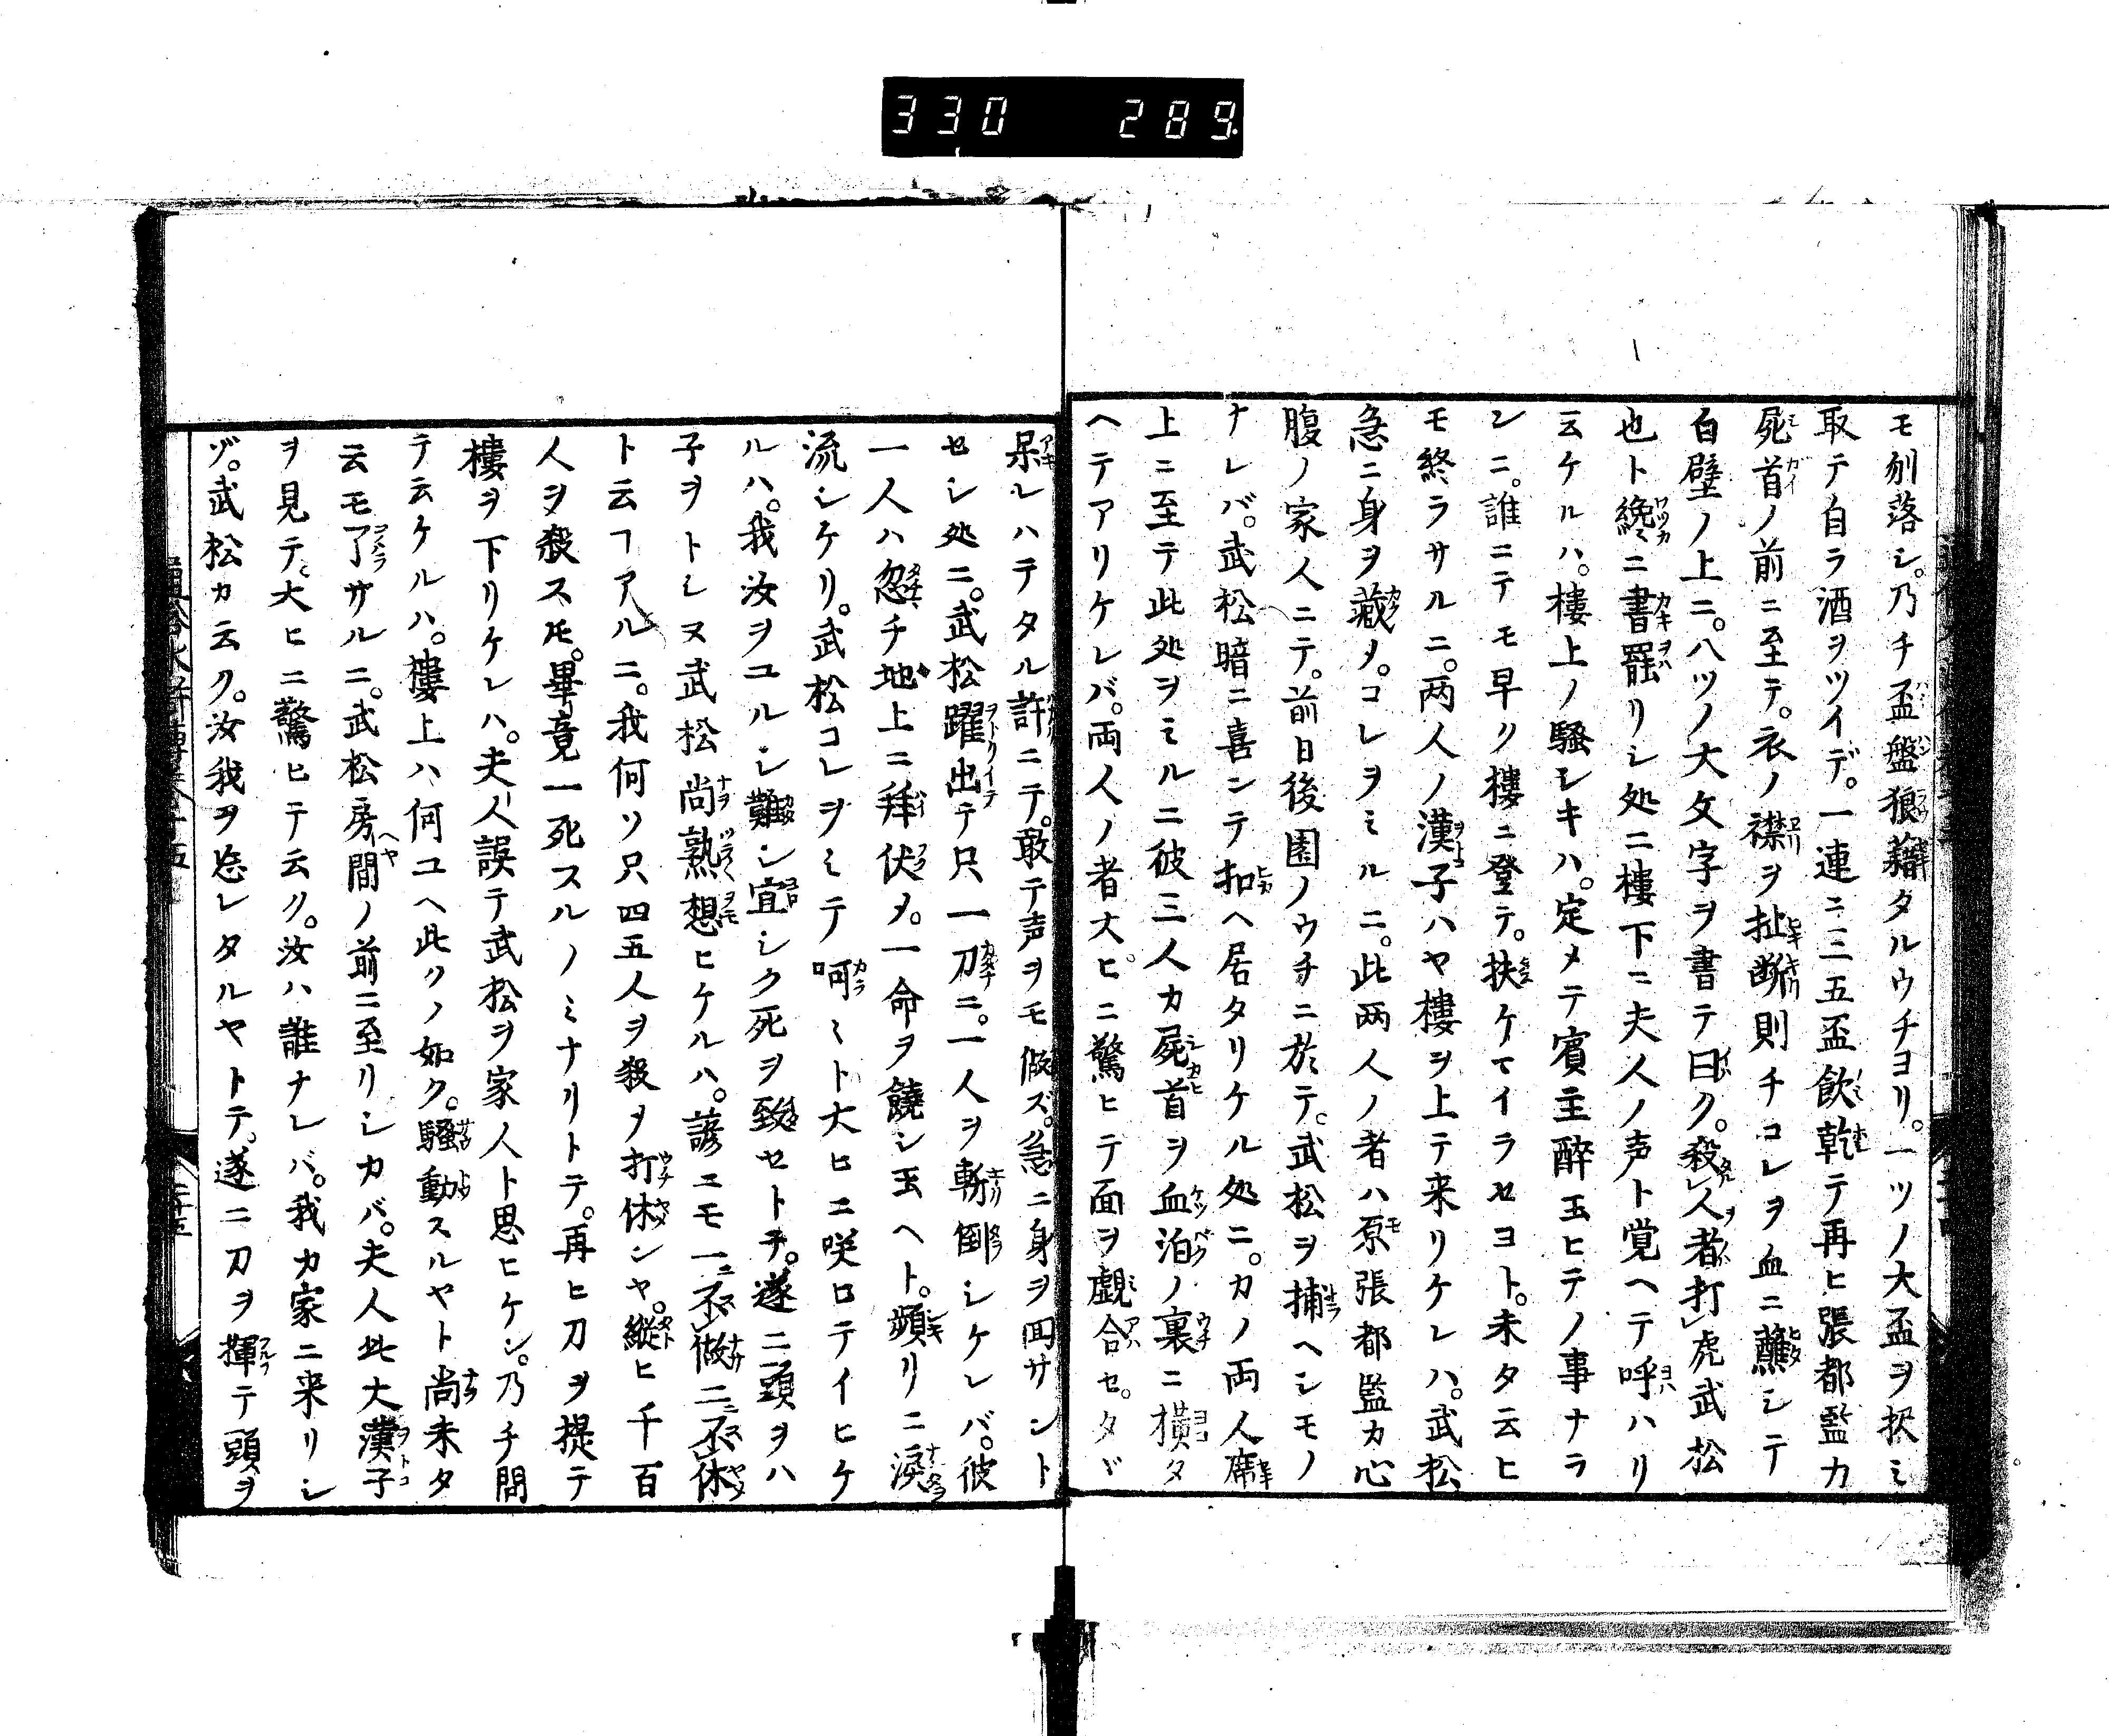 330 289
モ刎落シ。乃チ盃盤狼藉タルウチヨリ。一ツノ大盃ヲ択ミ
取テ自ラ酒ヲツイデ。一連ニ三五盃飲乾テ再ヒ張都監カ
死首ノ前ニ至テ。衣ノ襟ヲ扯断則チコレヲ血ニ蘸シテ
白壁ノ上ニ。八ツノ大文字ヲ書テ曰ク。殺人者打虎武松
也ト纔ニ書罷リシ処ニ樓下ニ夫人ノ声ト覚ヘテ呼ハリ
云ケルハ。樓上ノ騒シキハ。定メテ賓主醉玉ヒテノ事ナラ
ンニ。誰ニテモ早ク樓ニ登テ。扶ケマイラセヨト。未タ云ヒ
モ終ラサルニ。両人ノ漢子ハヤ樓ヲ上テ来リケレハ。武松
急ニ身ヲ藏メ。コレヲミルニ。此両人ノ者ハ原張都監カ心
腹ノ家人ニテ。前日後園ノウチニ於テ。武松ヲ捕ヘシモノ
ナレバ。武松暗ニ喜ンテ扣ヘ居タリケル処ニ。カノ両人席
上ニ至テ此処ヲミルニ彼三人カ死首ヲ血泊ノ裏ニ横タ
ヘテアリケレバ。両人ノ者大ヒニ驚ヒテ面ヲ戯合セ。タヾ
呆レハテタル許ニテ。敢テ声ヲモ做ズ。急ニ身ヲ囘サント
セシ処ニ。武松躍出テ只一刀ニ。一人ヲ斬倒シケレバ。彼
一人ハ忽チ地上ニ拜伏メ。一命ヲ饒シ玉ヘト。頻リニ涙
流シケリ。武松コレヲミテ呵ミト大ヒニ咲ロテイヒケ
ルハ。我汝ヲユルシ難シ宜シク死ヲ致セトテ。遂ニ頭ヲハ
子ヲトシヌ武松尚熟想ヒケルハ。諺ニモ一不做二不休
ト云ヿアルニ。我何ソ只四五人ヲ殺ヲ打休ンヤ。縦ヒ千百
人ヲ殺スモ。畢竟一死スルノミナリトテ。再ヒ刀ヲ提テ
樓ヲ下リケレハ。夫人誤テ武松ヲ家人ト思ヒケン。乃チ問
テ云ケルハ。樓上ハ何ユヘ此クノ如ク。騒動スルヤト尚未タ
云モ了サルニ。武松房間ノ前ニ至リシカバ。夫人此大漢子
ヲ見テ大ヒニ驚ヒテ云ク。汝ハ誰ナレバ。我カ家ニ来リシ
ゾ。武松カ云ク。汝我ヲ忘レタルヤトテ。遂ニ刀ヲ揮テ頭ヲ